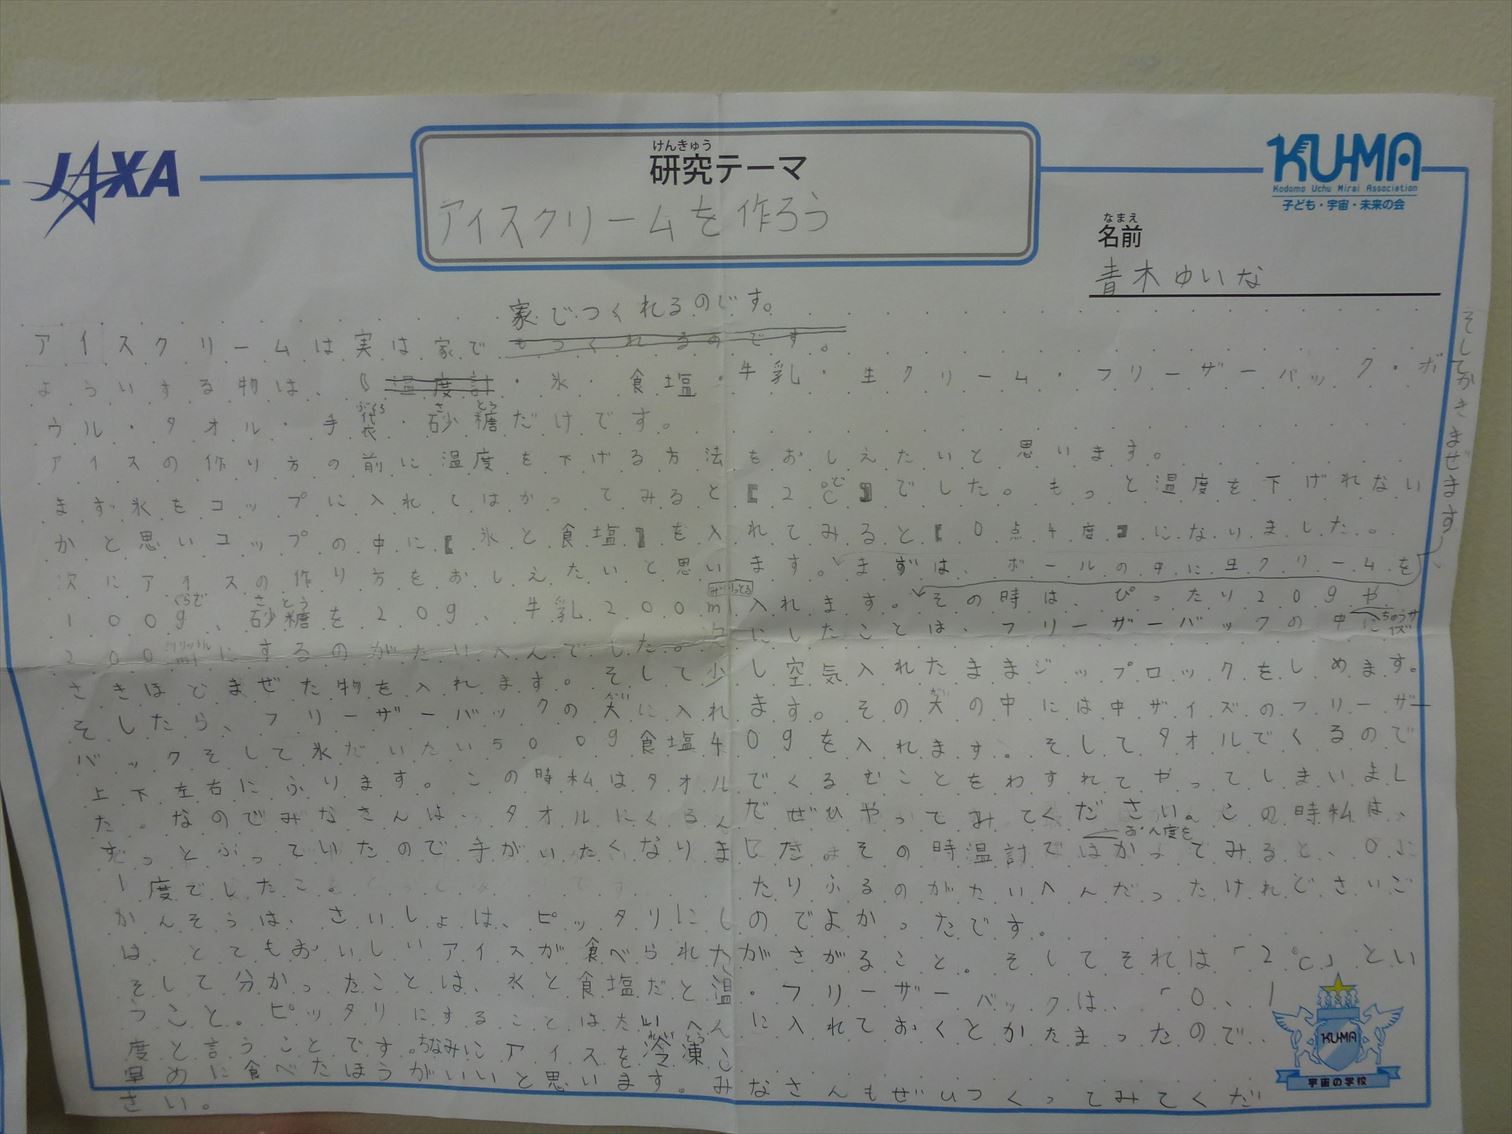 JAXA
けんきゅう
研究テーマ
アイスクリームを作ろう
KUMA
Kodomo Uchu Mirai Association
子ども・宇宙・未来の会
なまえ
名前
青木ゆいな
家でつくれるのです。
アイスクリームは実は家でもつくれるのです。
よういする物は、温度計・氷・食塩・牛乳・生クリーム・フリーザーバック・ボ
ウル・タオル・手袋・砂糖だけです。
アイスの作り方の前に温度を下げる方法をおしえたいと思います。
まず氷をコップに入れてはかってみると【2℃】でした。もっと温度を下げれない
かと思いコップの中に【氷と食塩】を入れてみると【0点4度】になりました。
次にアイスの作り方をおしえたいと思います。まずは、ボールの中に生クリームを
100g、砂糖を20g、牛乳200ml入れます。その時は、ぴったり20gや
そしてかきまぜます
200mlにするのがたいへんでした。にしたことは、フリーザーバックの中に
ちゅうサイズ
さきほどまぜた物を入れます。そして少し空気入れたままジップロックをしめます。
そしたら、フリーザーバックの大に入れます。その大の中には中サイズのフリーザー
バックそして氷だいたい500g食塩40gを入れます。そしてタオルでくるので
上下左右にふります。この時私はタオルでくるむことをわすれてやってしまいまし
た。なのでみなさんは、タオルにくるんだぜひやってみてください。この時私は、
おん度を
ずっとふっていたので手がいたくなりましたその時温計ではかってみると、0.
1度でしたこ。
かんそうは、さいしょは、ピッタリにしたりふるのがたいへんだったけれどさいご
は、とてもおいしいアイスが食べられたのでよかったです。
そして分かったことは、氷と食塩だと温がさがること。そしてそれは「2℃」とい
うこと。ピッタリにすることはたいへん・フリーザーバックは、「0、1
度と言うことです。ちなみにアイスを冷凍こに入れておくとかたまったので
早めに食べたほうがいいと思います。みなさんもぜひつくってみてくだ
さい。
KUMA
宇宙の学校